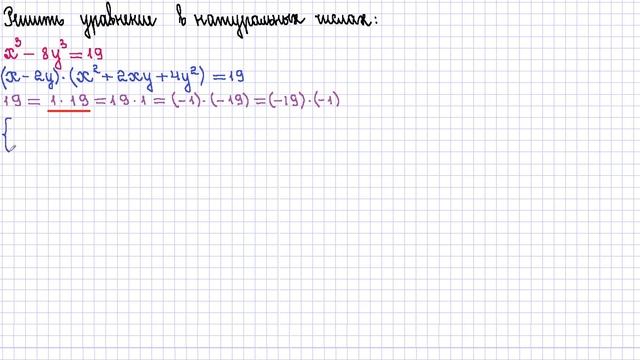 Решить уравнение в натуральных числах:
x³ - 8y³ = 19
(x-2y)·(x²+2xy+4y²) = 19
19 = 1·19 = 19·1 = (-1)·(-19) = (-19)·(-1)
{